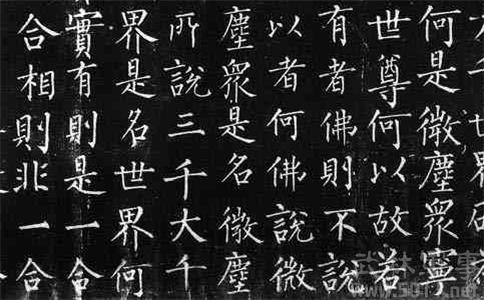 千世界
何是微塵衆寧
世尊何以故若
有者佛則不說
以者何佛說微
塵衆是名微塵
所說三千大千
界是名世界何
實有則是一合
合相則非一合